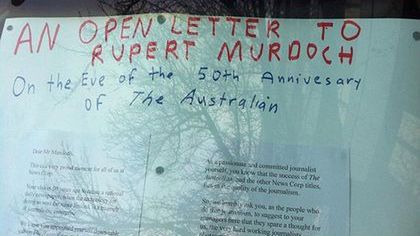 AN OPEN LETTER TO
RUPERT MURDOCH
On the Eve of the 50th Annivesary
of The Australian
Dear Mr Murdoch,
This is a very proud moment for all of us at
News Corp.
Your vision 50 years ago
As a passionate and committed journalist
yourself, you know that the success of The
Australian and the other News Corp titles,
lies in the quality of the journalism.
So we humbly ask you, as the people who
do the journalism, to suggest to your
managers here that they spare a thought for
us, the very hard working journalists